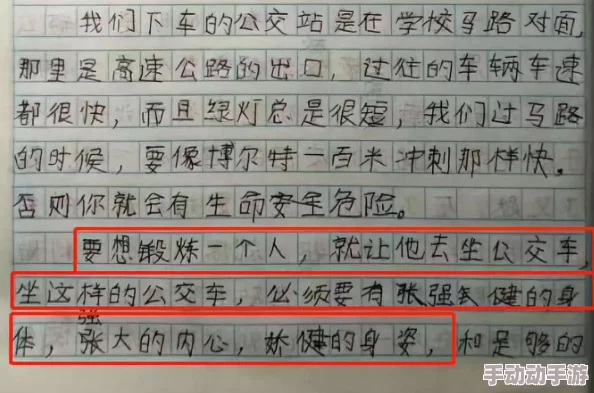 我们下车的公交站是在学校马路对面,
那里是高速公路的出口,过往的车辆车速
都很快,而且绿灯总是很短,我们过马路
的时候,要像博尔特一百米冲刺那样快。
否则你就会有生命安全危险。
要想锻炼一个人,就让他去坐公交车,
坐这样的公交车,必须要有强健的身
体,强大的内心,娇健的身姿,和足够的
手动动手游